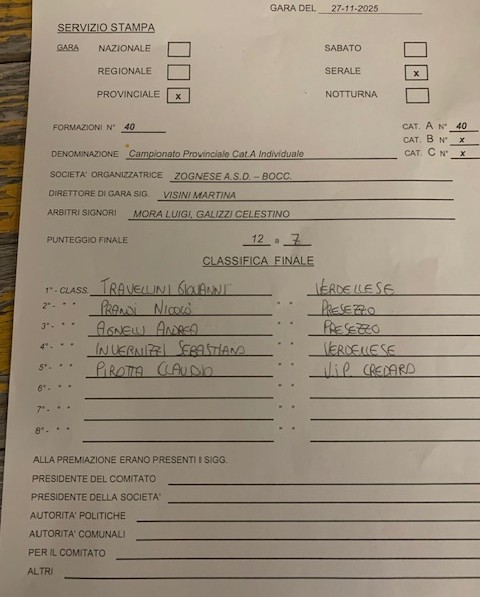 GARA DEL 27-11-2025
SERVIZIO STAMPA
GARA NAZIONALE SABATO
REGIONALE SERALE x
PROVINCIALE x NOTTURNA
FORMAZIONI N° 40 CAT. A N° 40
CAT. B N° x
DENOMINAZIONE Campionato Provinciale Cat.A Individuale CAT. C N° x
SOCIETA' ORGANIZZATRICE ZOGNESE A.S.D. – BOCC.
DIRETTORE DI GARA SIG. VISINI MARTINA
ARBITRI SIGNORI MORA LUIGI, GALIZZI CELESTINO
PUNTEGGIO FINALE 12 a 7
CLASSIFICA FINALE
1° - CLASS. TRAVELLINI GIOVANNI VERDELLESE
2° - " " PRANDI NICOLÒ " " PRESEZZO
3° - " " AGNELLI ANDREA " " PRESEZZO
4° - " " INVERNIZZI SEBASTIANO " " VERDELLESE
5° - " " PIROTTA CLAUDIO " " V.I.P. CREDARO
6° - " " " "
7° - " " " "
8° - " " " "
ALLA PREMIAZIONE ERANO PRESENTI I SIGG.
PRESIDENTE DEL COMITATO
PRESIDENTE DELLA SOCIETA'
AUTORITA' POLITICHE
AUTORITA' COMUNALI
PER IL COMITATO
ALTRI